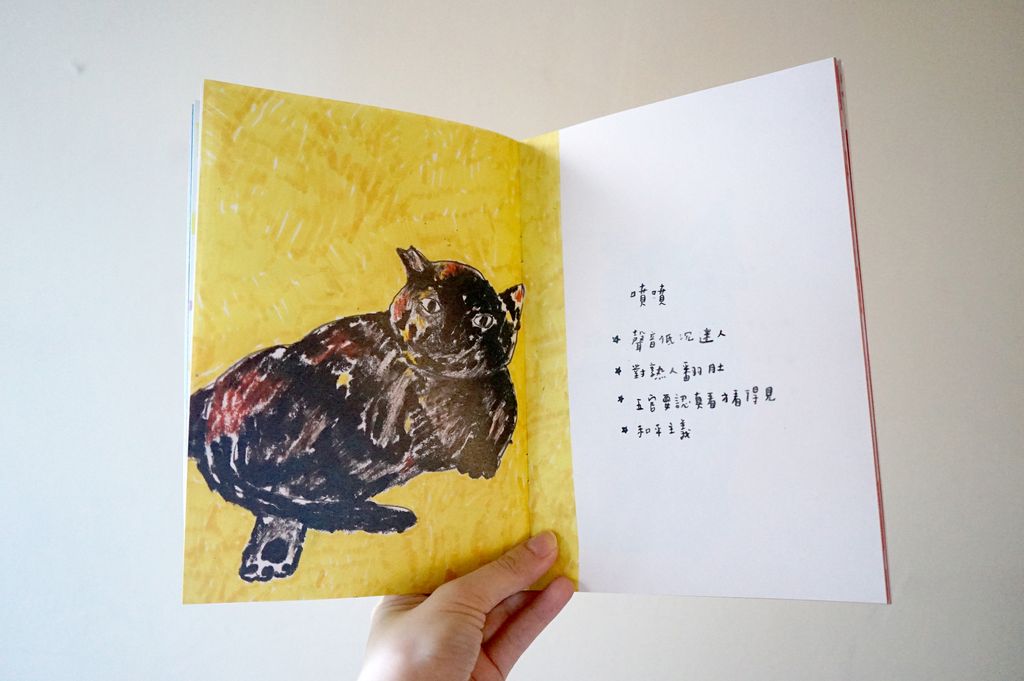 噴噴
★ 聲音低沉迷人
★ 對熟人翻肚
★ 五官要認真看才看得見
★ 和平主義